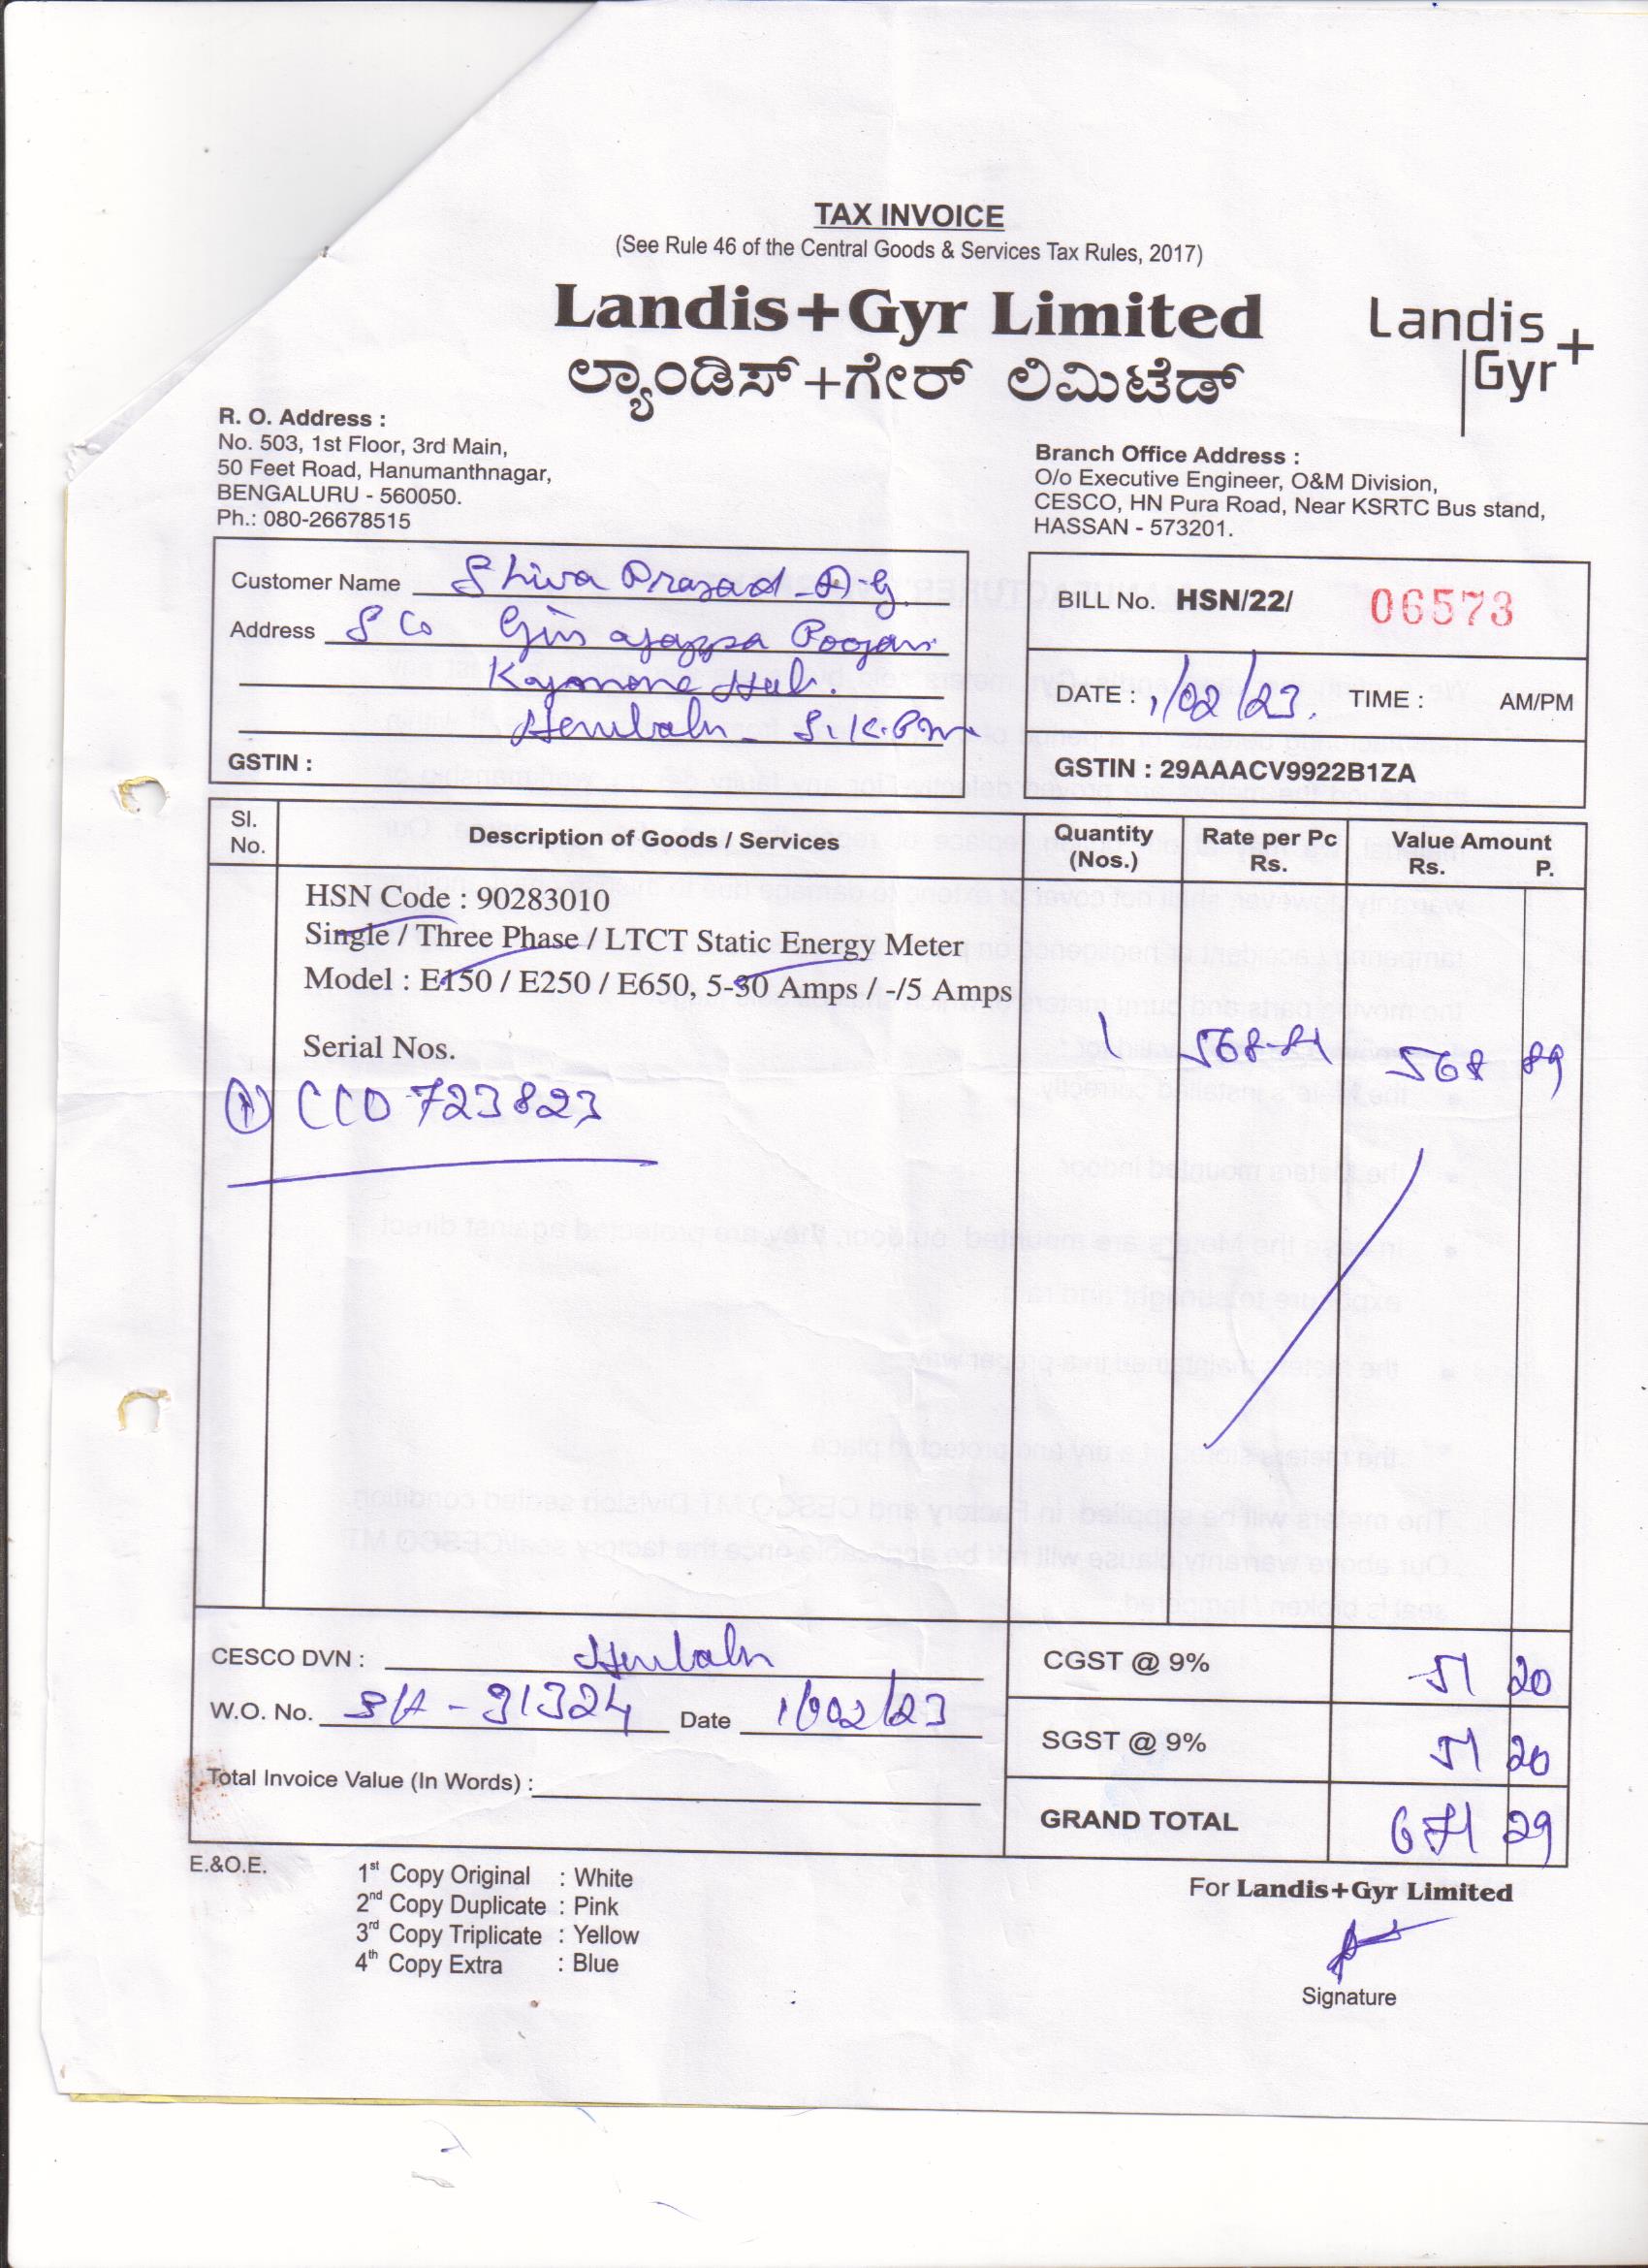 TAX INVOICE
(See Rule 46 of the Central Goods & Services Tax Rules, 2017)
Landis+Gyr Limited
ಲ್ಯಾಂಡಿಸ್+ಗೇರ್ ಲಿಮಿಟೆಡ್
Landis
Gyr+
R. O. Address :
No. 503, 1st Floor, 3rd Main,
50 Feet Road, Hanumanthnagar,
BENGALURU - 560050.
Ph.: 080-26678515
Branch Office Address :
O/o Executive Engineer, O&M Division,
CESCO, HN Pura Road, Near KSRTC Bus stand,
HASSAN - 573201.
Customer Name Shiva Prasad
Address
GSTIN :
BILL No. HSN/22/ 06573
DATE : 1/02/23. TIME : AM/PM
GSTIN : 29AAACV9922B1ZA
Sl. No. Description of Goods / Services Quantity (Nos.) Rate per Pc Rs. Value Amount Rs. P.
HSN Code : 90283010
Single / Three Phase / LTCT Static Energy Meter
Model : E150 / E250 / E650, 5-30 Amps / -/5 Amps
Serial Nos. 1 568 89
① CCO 723823
CESCO DVN :
CGST @ 9% 51 20
W.O. No. Date 1/02/23
SGST @ 9% 51 20
Total Invoice Value (In Words) :
GRAND TOTAL 671 29
E.&O.E.
1st Copy Original : White
2nd Copy Duplicate : Pink
3rd Copy Triplicate : Yellow
4th Copy Extra : Blue
For Landis+Gyr Limited
Signature